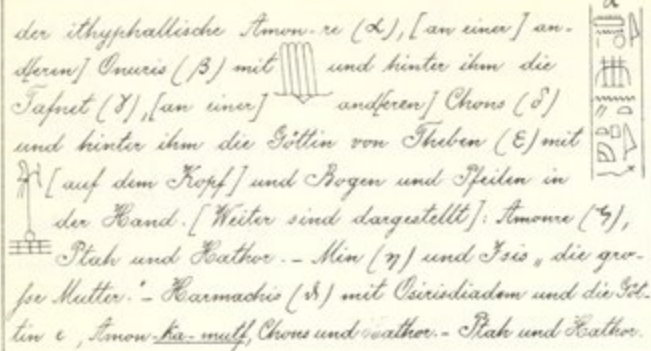 der ithyphallische Amon-re (α), [an einer] an-
d[eren] Onuris (β) mit und hinter ihm die
Tafnet (γ), [an einer] and[eren] Chons (δ)
und hinter ihm die Göttin von Theben (ε) mit
[auf dem Kopf] und Bogen und Pfeilen in
der Hand. [Weiter sind dargestellt]: Amonre (ζ),
Ptah und Hathor. – Min (η) und Isis „die gro-
ße Mutter." – Harmachis (ϑ) mit Osirisdiadem und die Göt-
tin ε, Amon-ka-mutf, Chons und Hathor. – Ptah und Hathor.
α